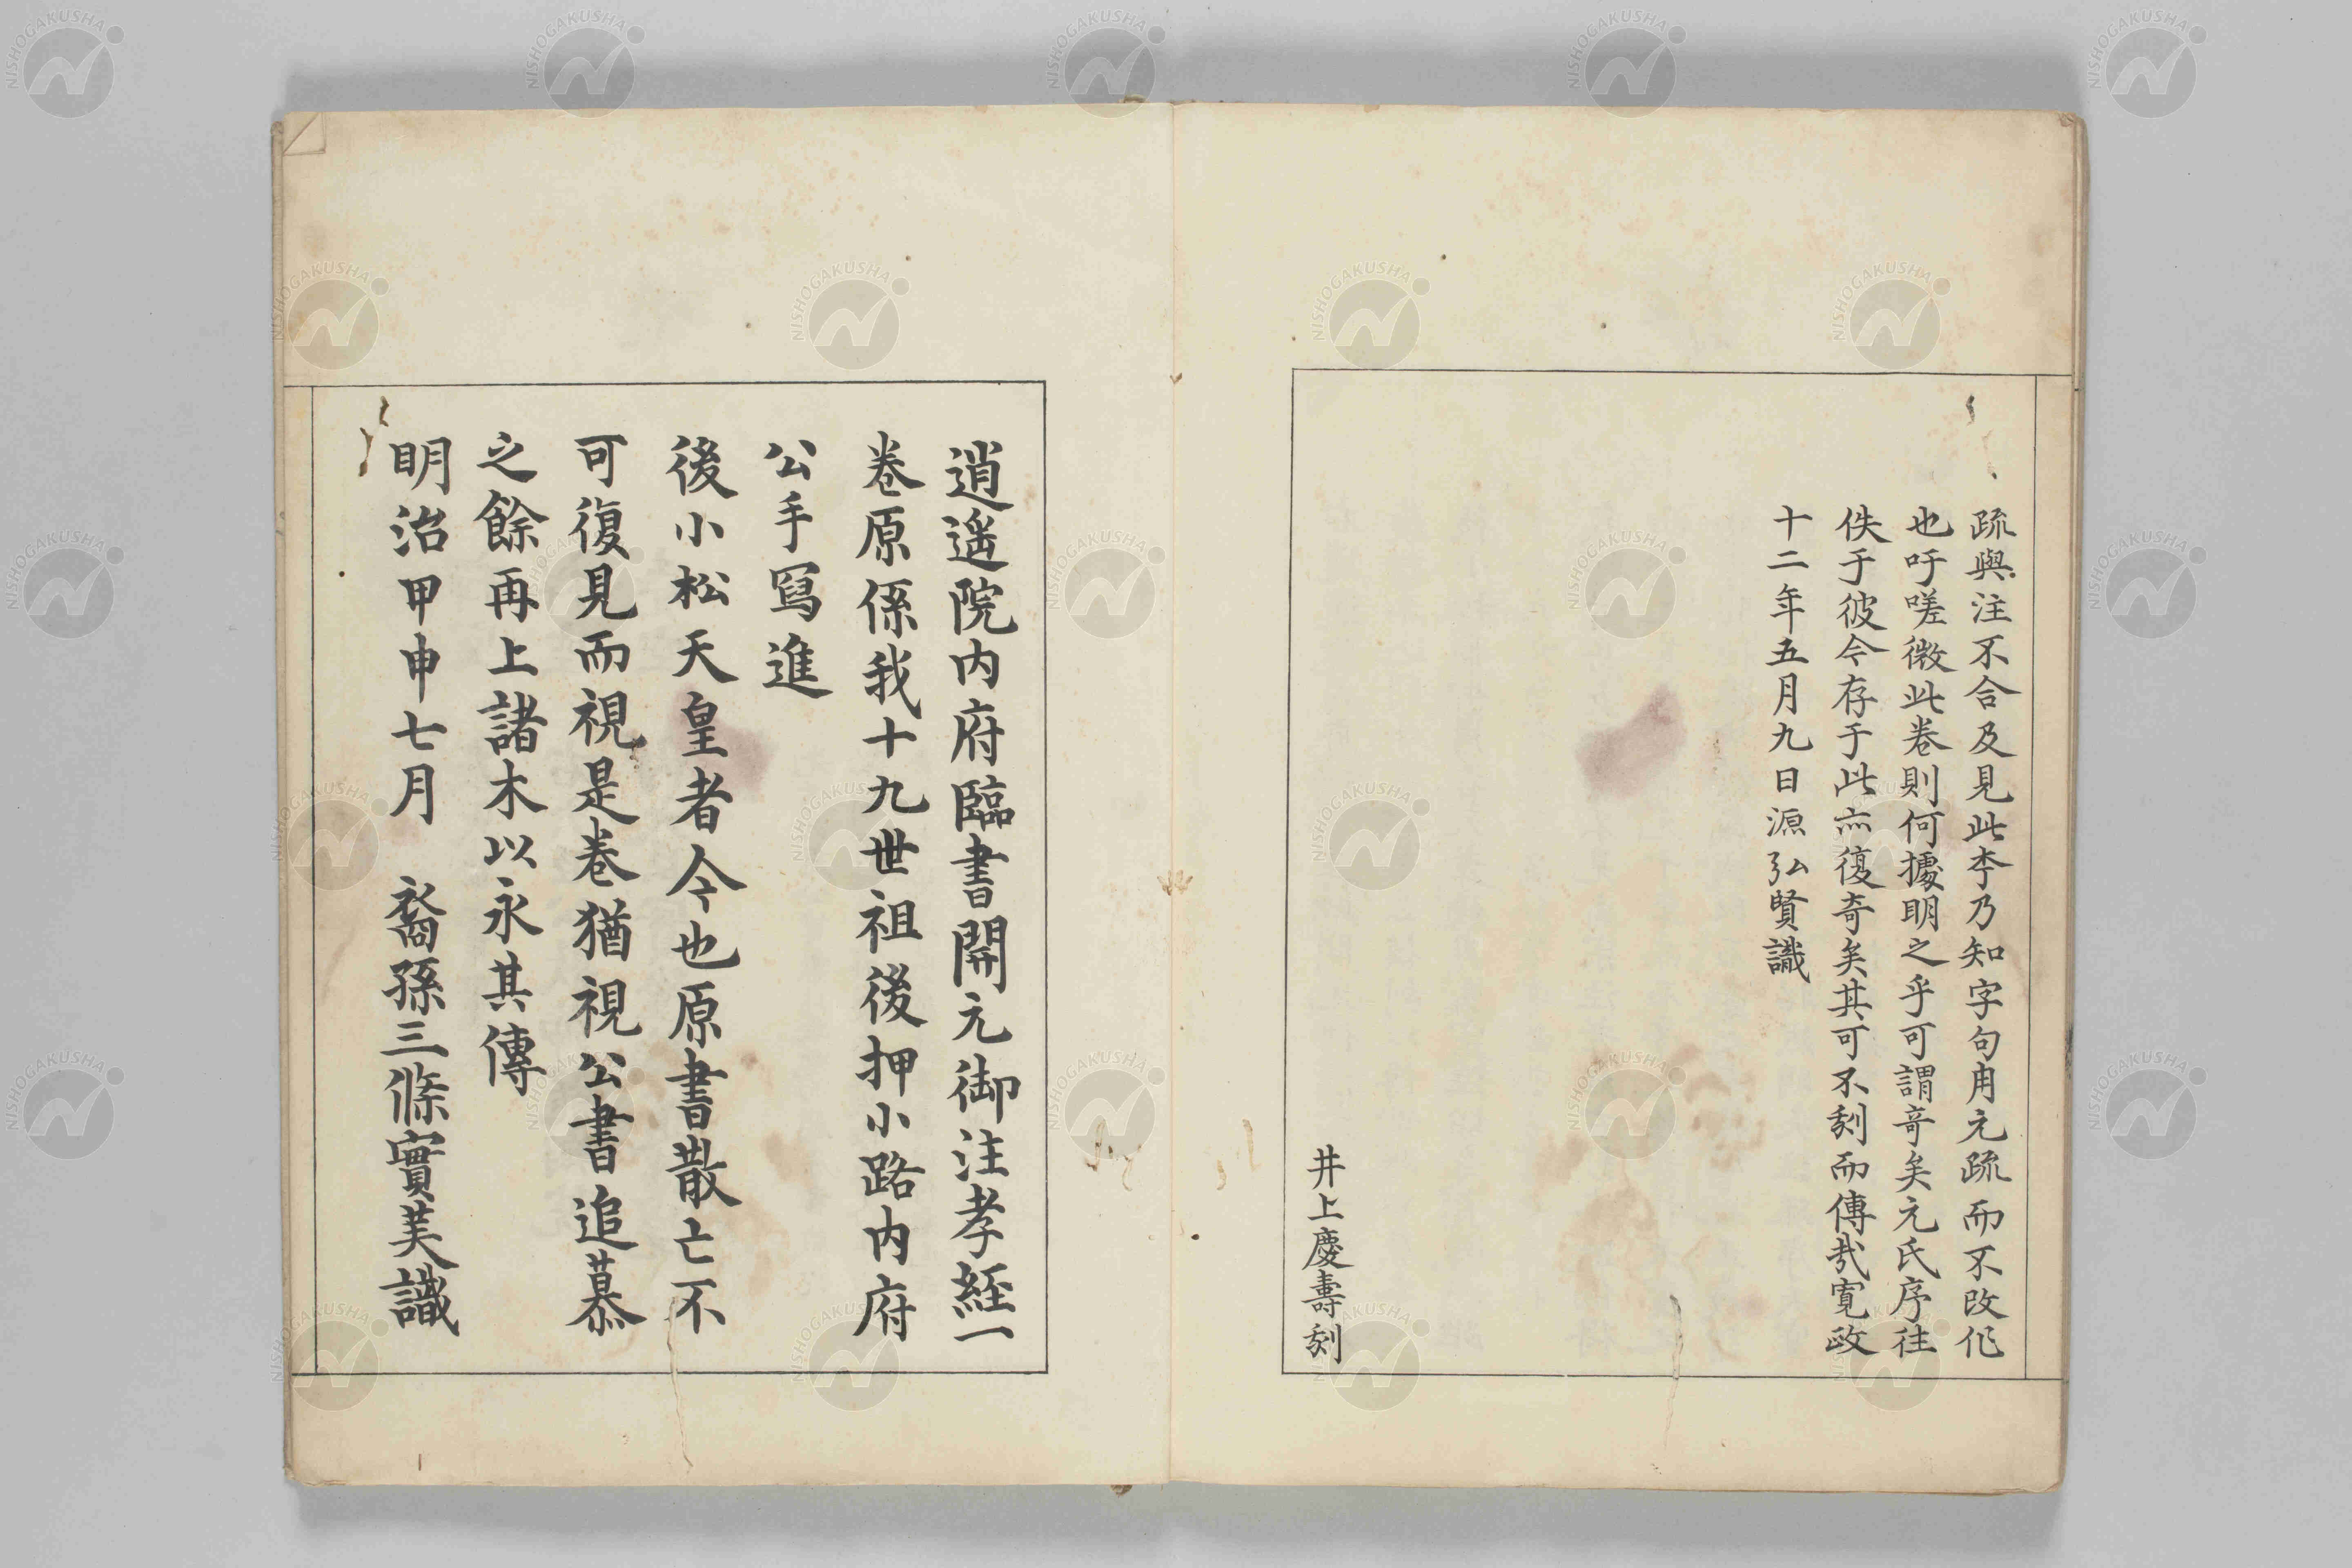 疏與注不合及見此本乃知字句用元疏而不改作
也吁嗟微此卷則何據明之乎可謂奇矣元氏序往
佚于彼今存于此亦復奇矣其可不刻而傳哉寛政
十二年五月九日源弘賢識
井上慶壽刻
逍遥院内府臨書開元御注孝経一
卷原係我十九世祖後押小路内府
公手寫進
後小松天皇者今也原書散亡不
可復見而視是卷猶視公書追慕
之餘再上諸木以永其傳
明治甲申七月 裔孫三條實美識
NISHOGAKUSHA